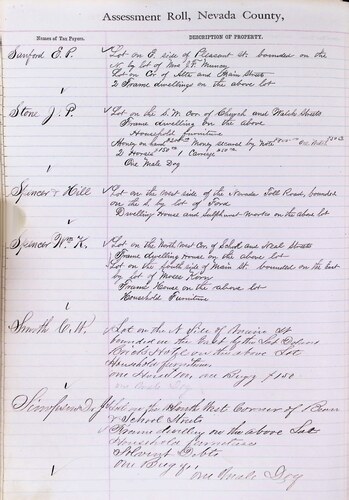 Assessment Roll, Nevada County,
Names of Tax Payers.
DESCRIPTION OF PROPERTY.
Sanford E. P.
Lot on E. side of Pleasant St. bounded on the
N. by lot of Mrs J. F.
Lot on Cor of and Main Streets
2 Frame dwellings on the above lot
Stone J. P.
Lot on the S. W. Cor of Church and Walsh Streets
Frame dwelling on the above
Household furniture
Money on hand Money secured by Note
2 Horses $150 1 Carriage
One Male Dog
Spencer & Hill
Lot on the west side of the Nevada Toll Road, bounded
on the S by lot of Ford
Dwelling House and Sulphuret works on the above lot
Spencer Wm K.
Lot on the North West Cor of School and Neal Streets
Frame dwelling house on the above lot
Lot on the South side of Main St. bounded on the East
by lot of Moses
Frame House on the above lot
Household Furniture
Smith C. W.
Lot on the N Side of St
bounded on the by the Lot
Brick on the above Lot
Household furniture
one one Buggy $150
one Male Dog
Lot on the North West Corner of
& School Streets
Frame dwelling on the above Lot
Household furniture
Solvent Debts
One Buggy
one Male Dog